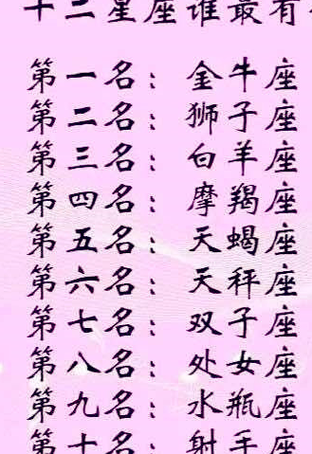 十二星座谁最有
第一名：金牛座
第二名：狮子座
第三名：白羊座
第四名：摩羯座
第五名：天蝎座
第六名：天秤座
第七名：双子座
第八名：处女座
第九名：水瓶座
第十名：射手座